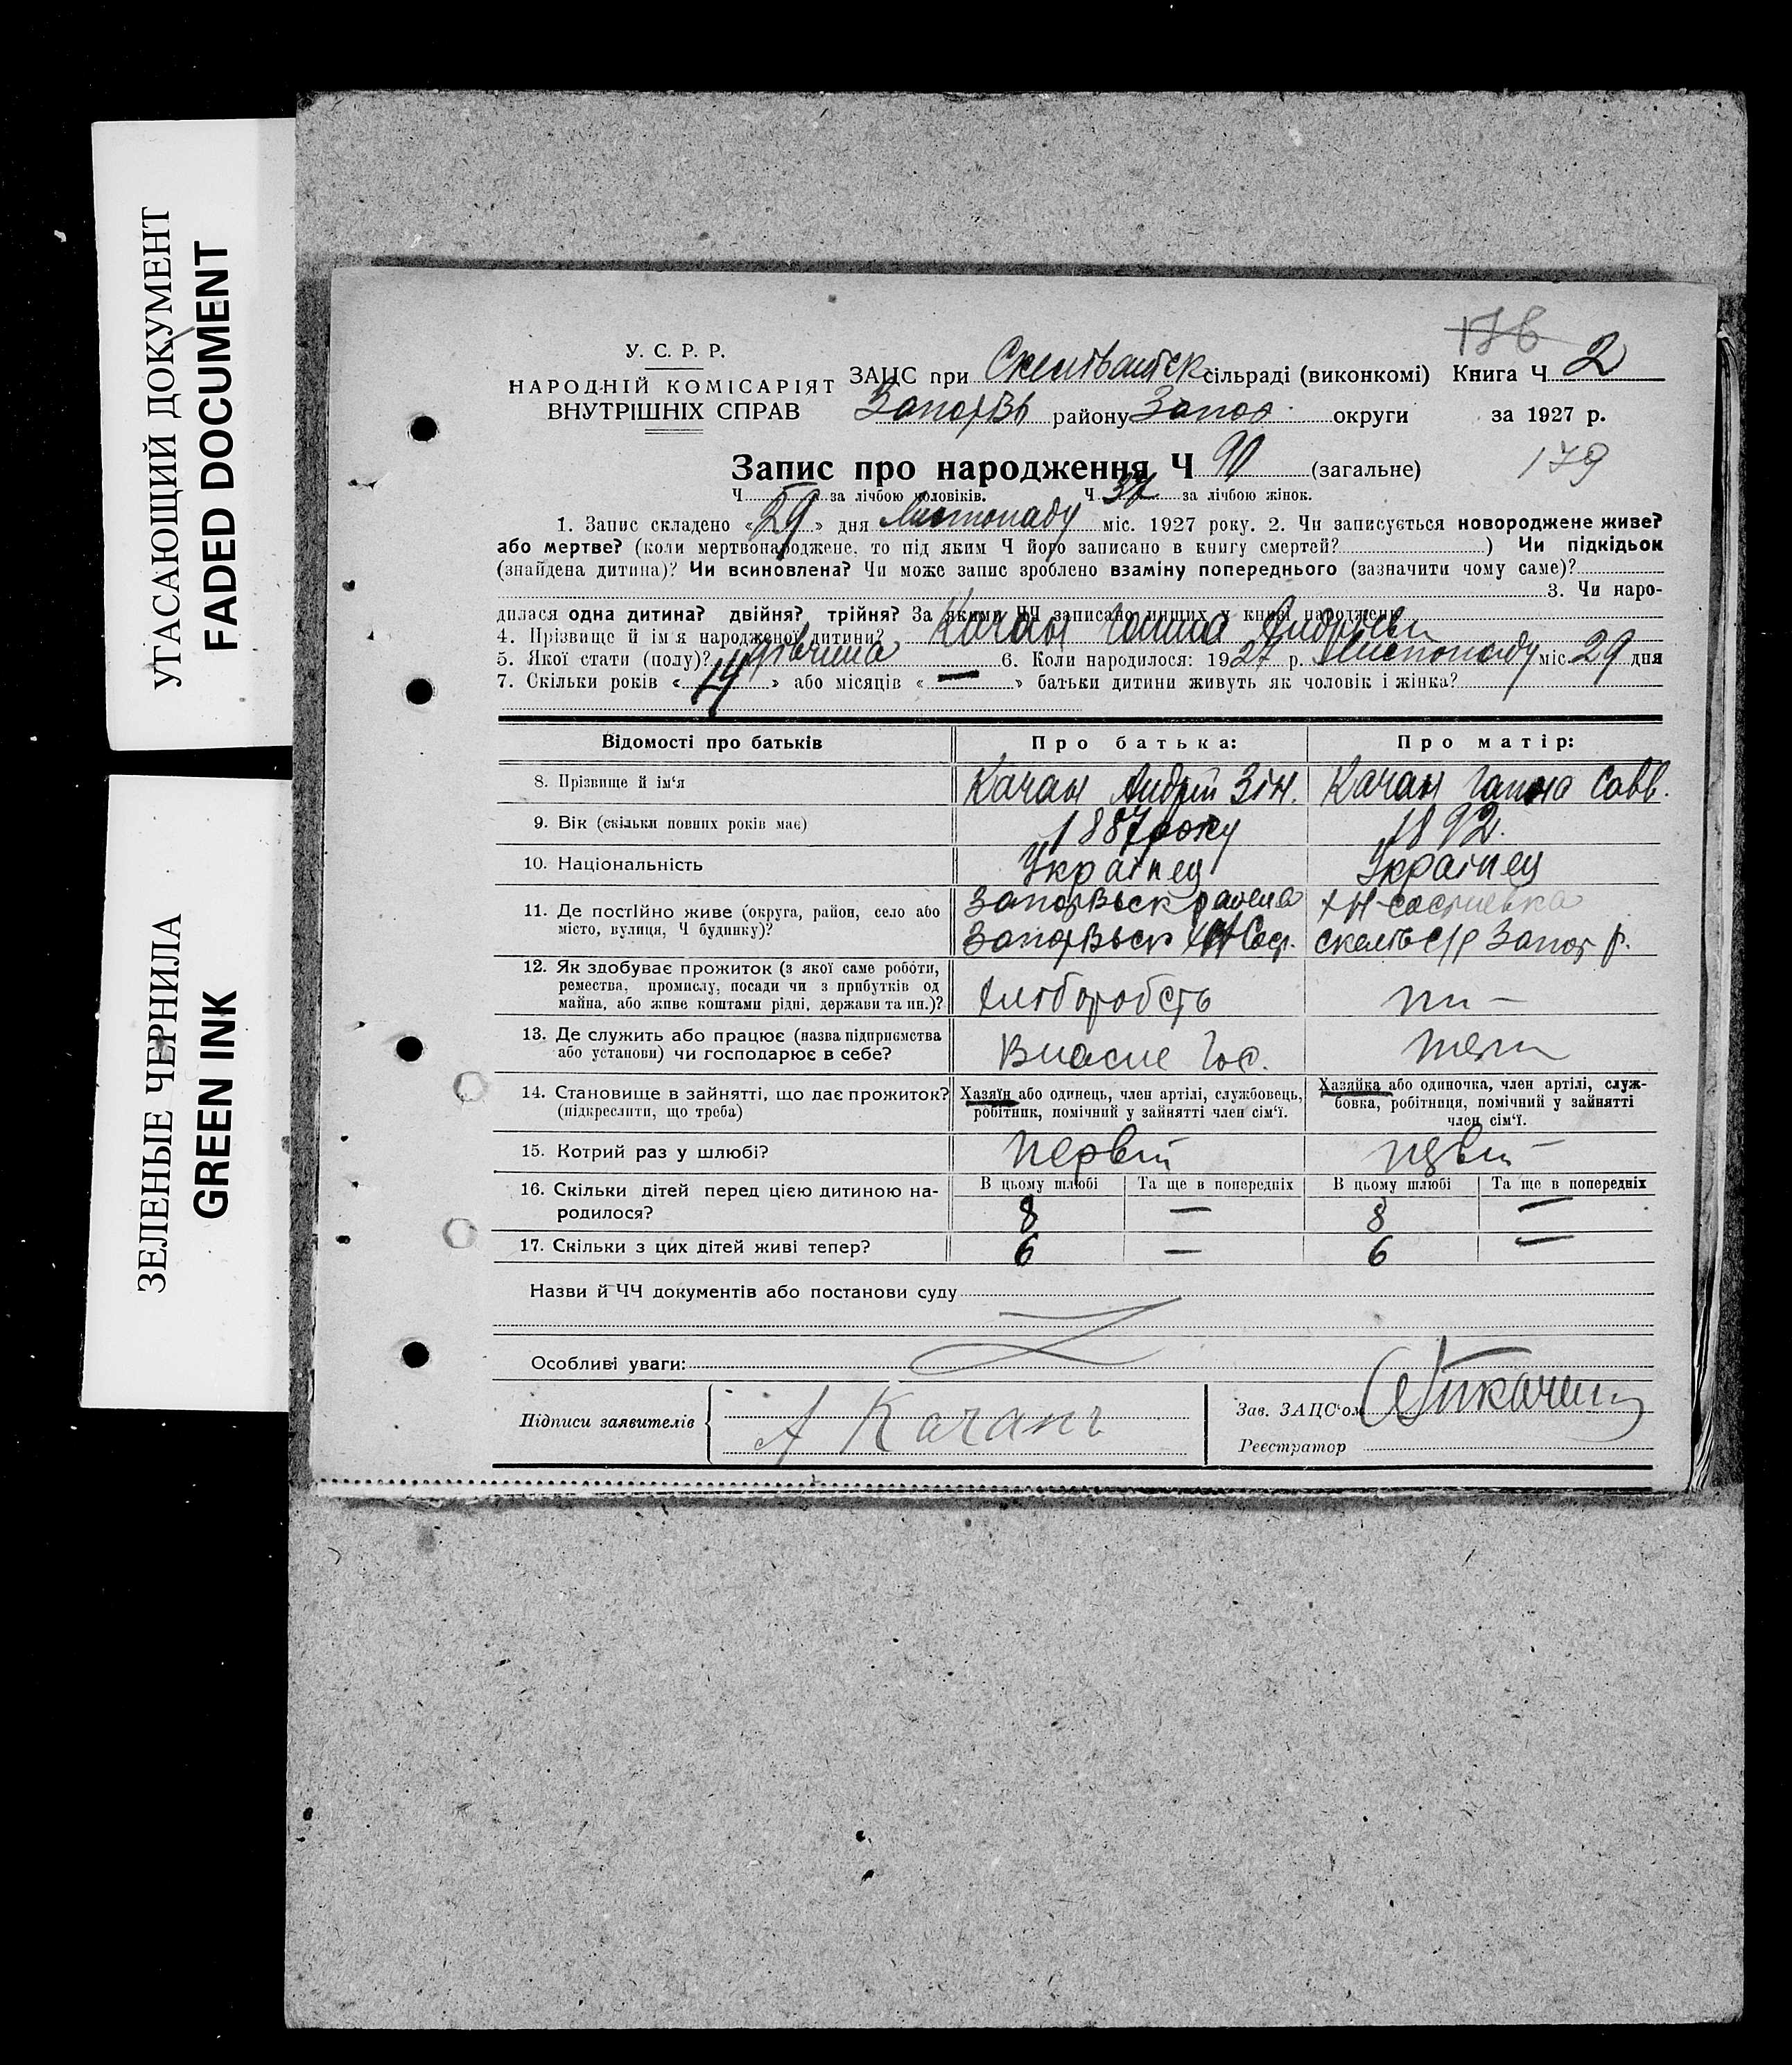 УГАСАЮЩИЙ ДОКУМЕНТ
FADED DOCUMENT
ЗЕЛЕНЫЕ ЧЕРНИЛА
GREEN INK
176
У. С. Р. Р.
НАРОДНІЙ КОМІСАРІЯТ
ВНУТРІШНІХ СПРАВ
ЗАЦС при сільраді (виконкомі) Книга Ч. 2
району Запор. округи за 1927 р.
179
Запис про народження Ч 90 (загальне)
Ч за лічбою чоловіків. Ч 37 за лічбою жінок.
1. Запис складено «29» дня Листопаду міс. 1927 року. 2. Чи записується новороджене живе?
або мертве? (коли мертвонароджене, то під яким Ч його записано в книгу смертей? ) Чи підкідьок
(знайдена дитина)? Чи всиновлена? Чи може запис зроблено взаміну попереднього (зазначити чому саме)?
3. Чи наро-
дилася одна дитина? двійня? трійня? За якими ЧЧ записано инших у книзі народжень
4. Прізвище й ім'я народженої дитини? Качан Ганна Андріївн
5. Якої стати (полу)? дівчина 6. Коли народилося: 1927 р. Листопаду міс. 29 дня
7. Скільки років «14» або місяців «—» батьки дитини живуть як чоловік і жінка?
Відомості про батьків Про батька: Про матір:
8. Прізвище й ім'я Качан Андрій Зін. Качан Ганна Савв.
9. Вік (скільки повних років має) 1887 року 1892.
10. Національність Українец Українец
11. Де постійно живе (округа, район, село або
місто, вулиця, Ч будинку)?
12. Як здобуває прожиток (з якої саме роботи,
ремества, промислу, посади чи з прибутків од
майна, або живе коштами рідні, держави та ин.)?
13. Де служить або працює (назва підприємства
або установи) чи господарює в себе? Власне Гос.
14. Становище в зайнятті, що дає прожиток?
(підкреслити, що треба)
Хазяїн або одинець, член артілі, службовець,
робітник, помічний у зайнятті член сім'ї.
Хазяйка або одиночка, член артілі, служ-
бовка, робітниця, помічний у зайнятті
член сім'ї.
15. Котрий раз у шлюбі? первий
16. Скільки дітей перед цією дитиною на-
родилося?
В цьому шлюбі Та ще в попередніх В цьому шлюбі Та ще в попередніх
8 — 8 —
17. Скільки з цих дітей живі тепер? 6 — 6 —
Назви й ЧЧ документів або постанови суду
Особливі уваги:
Підписи заявителів А Качанъ
Зав. ЗАЦС'ом
Реєстратор